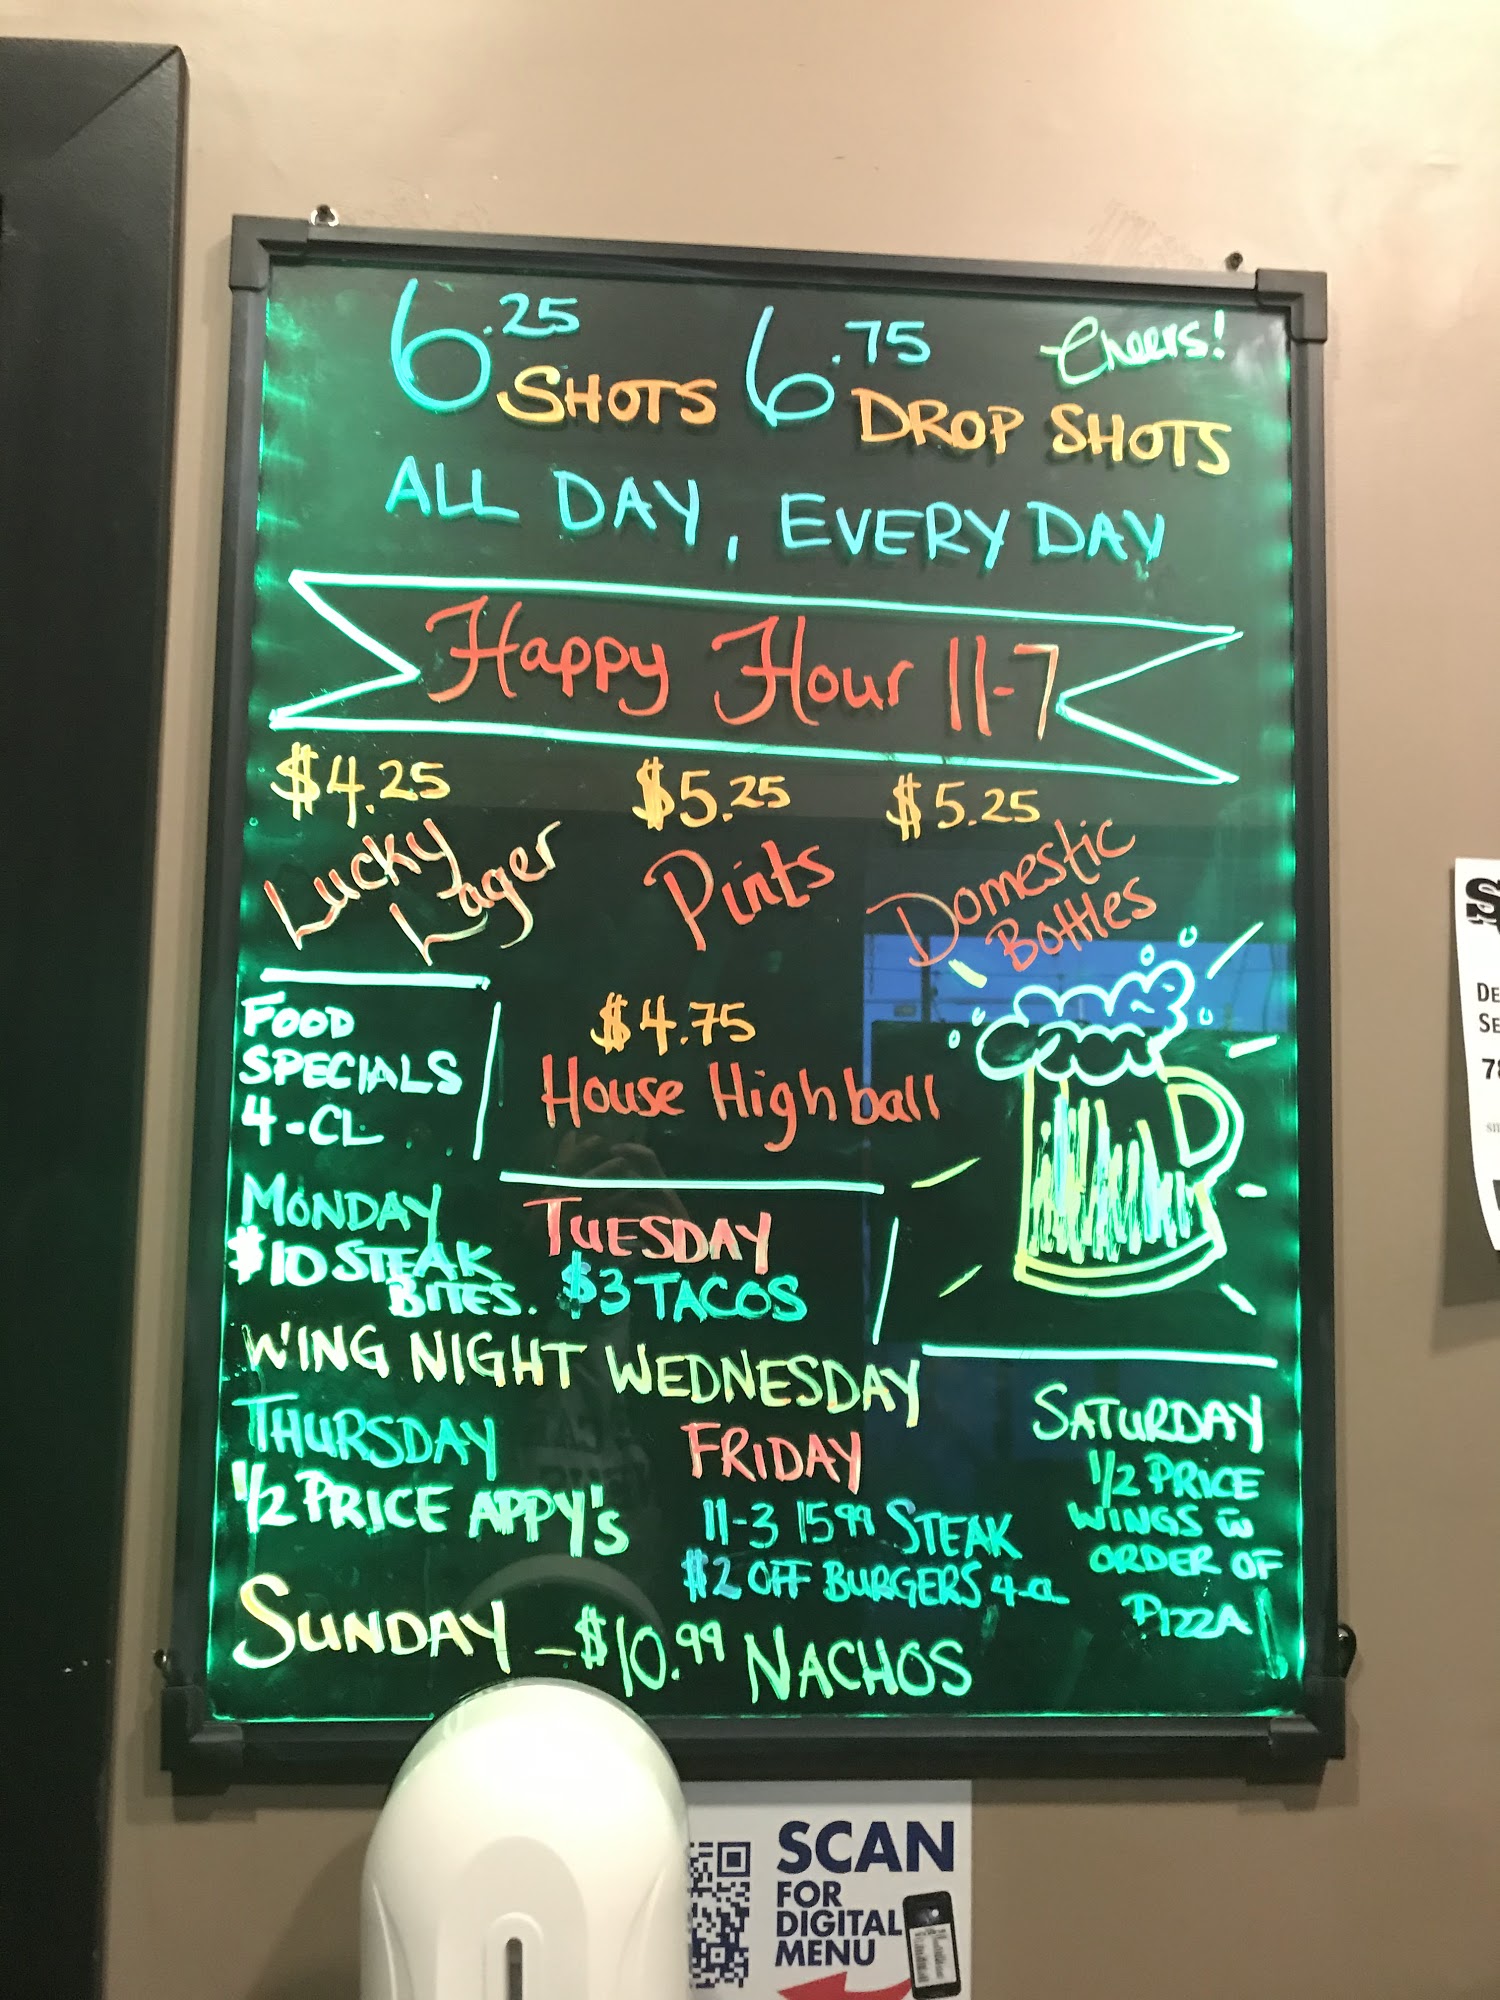 6.25 SHOTS 6.75 DROP SHOTS
Cheers!
ALL DAY, EVERY DAY
Happy Hour 11-7
$4.25 Lucky Lager
$5.25 Pints
$5.25 Domestic Bottles
$4.75
House Highball
FOOD
SPECIALS
4-CL
MONDAY
$10 STEAK
BITES.
TUESDAY
$3 TACOS
WING NIGHT WEDNESDAY
THURSDAY
1/2 PRICE APPY'S
FRIDAY
11-3 15.99 STEAK
$2 OFF BURGERS 4-CL
SATURDAY
1/2 PRICE
WINGS w
ORDER OF
PIZZA!
SUNDAY - $10.99 NACHOS
SCAN
FOR
DIGITAL
MENU
DE
SE
78